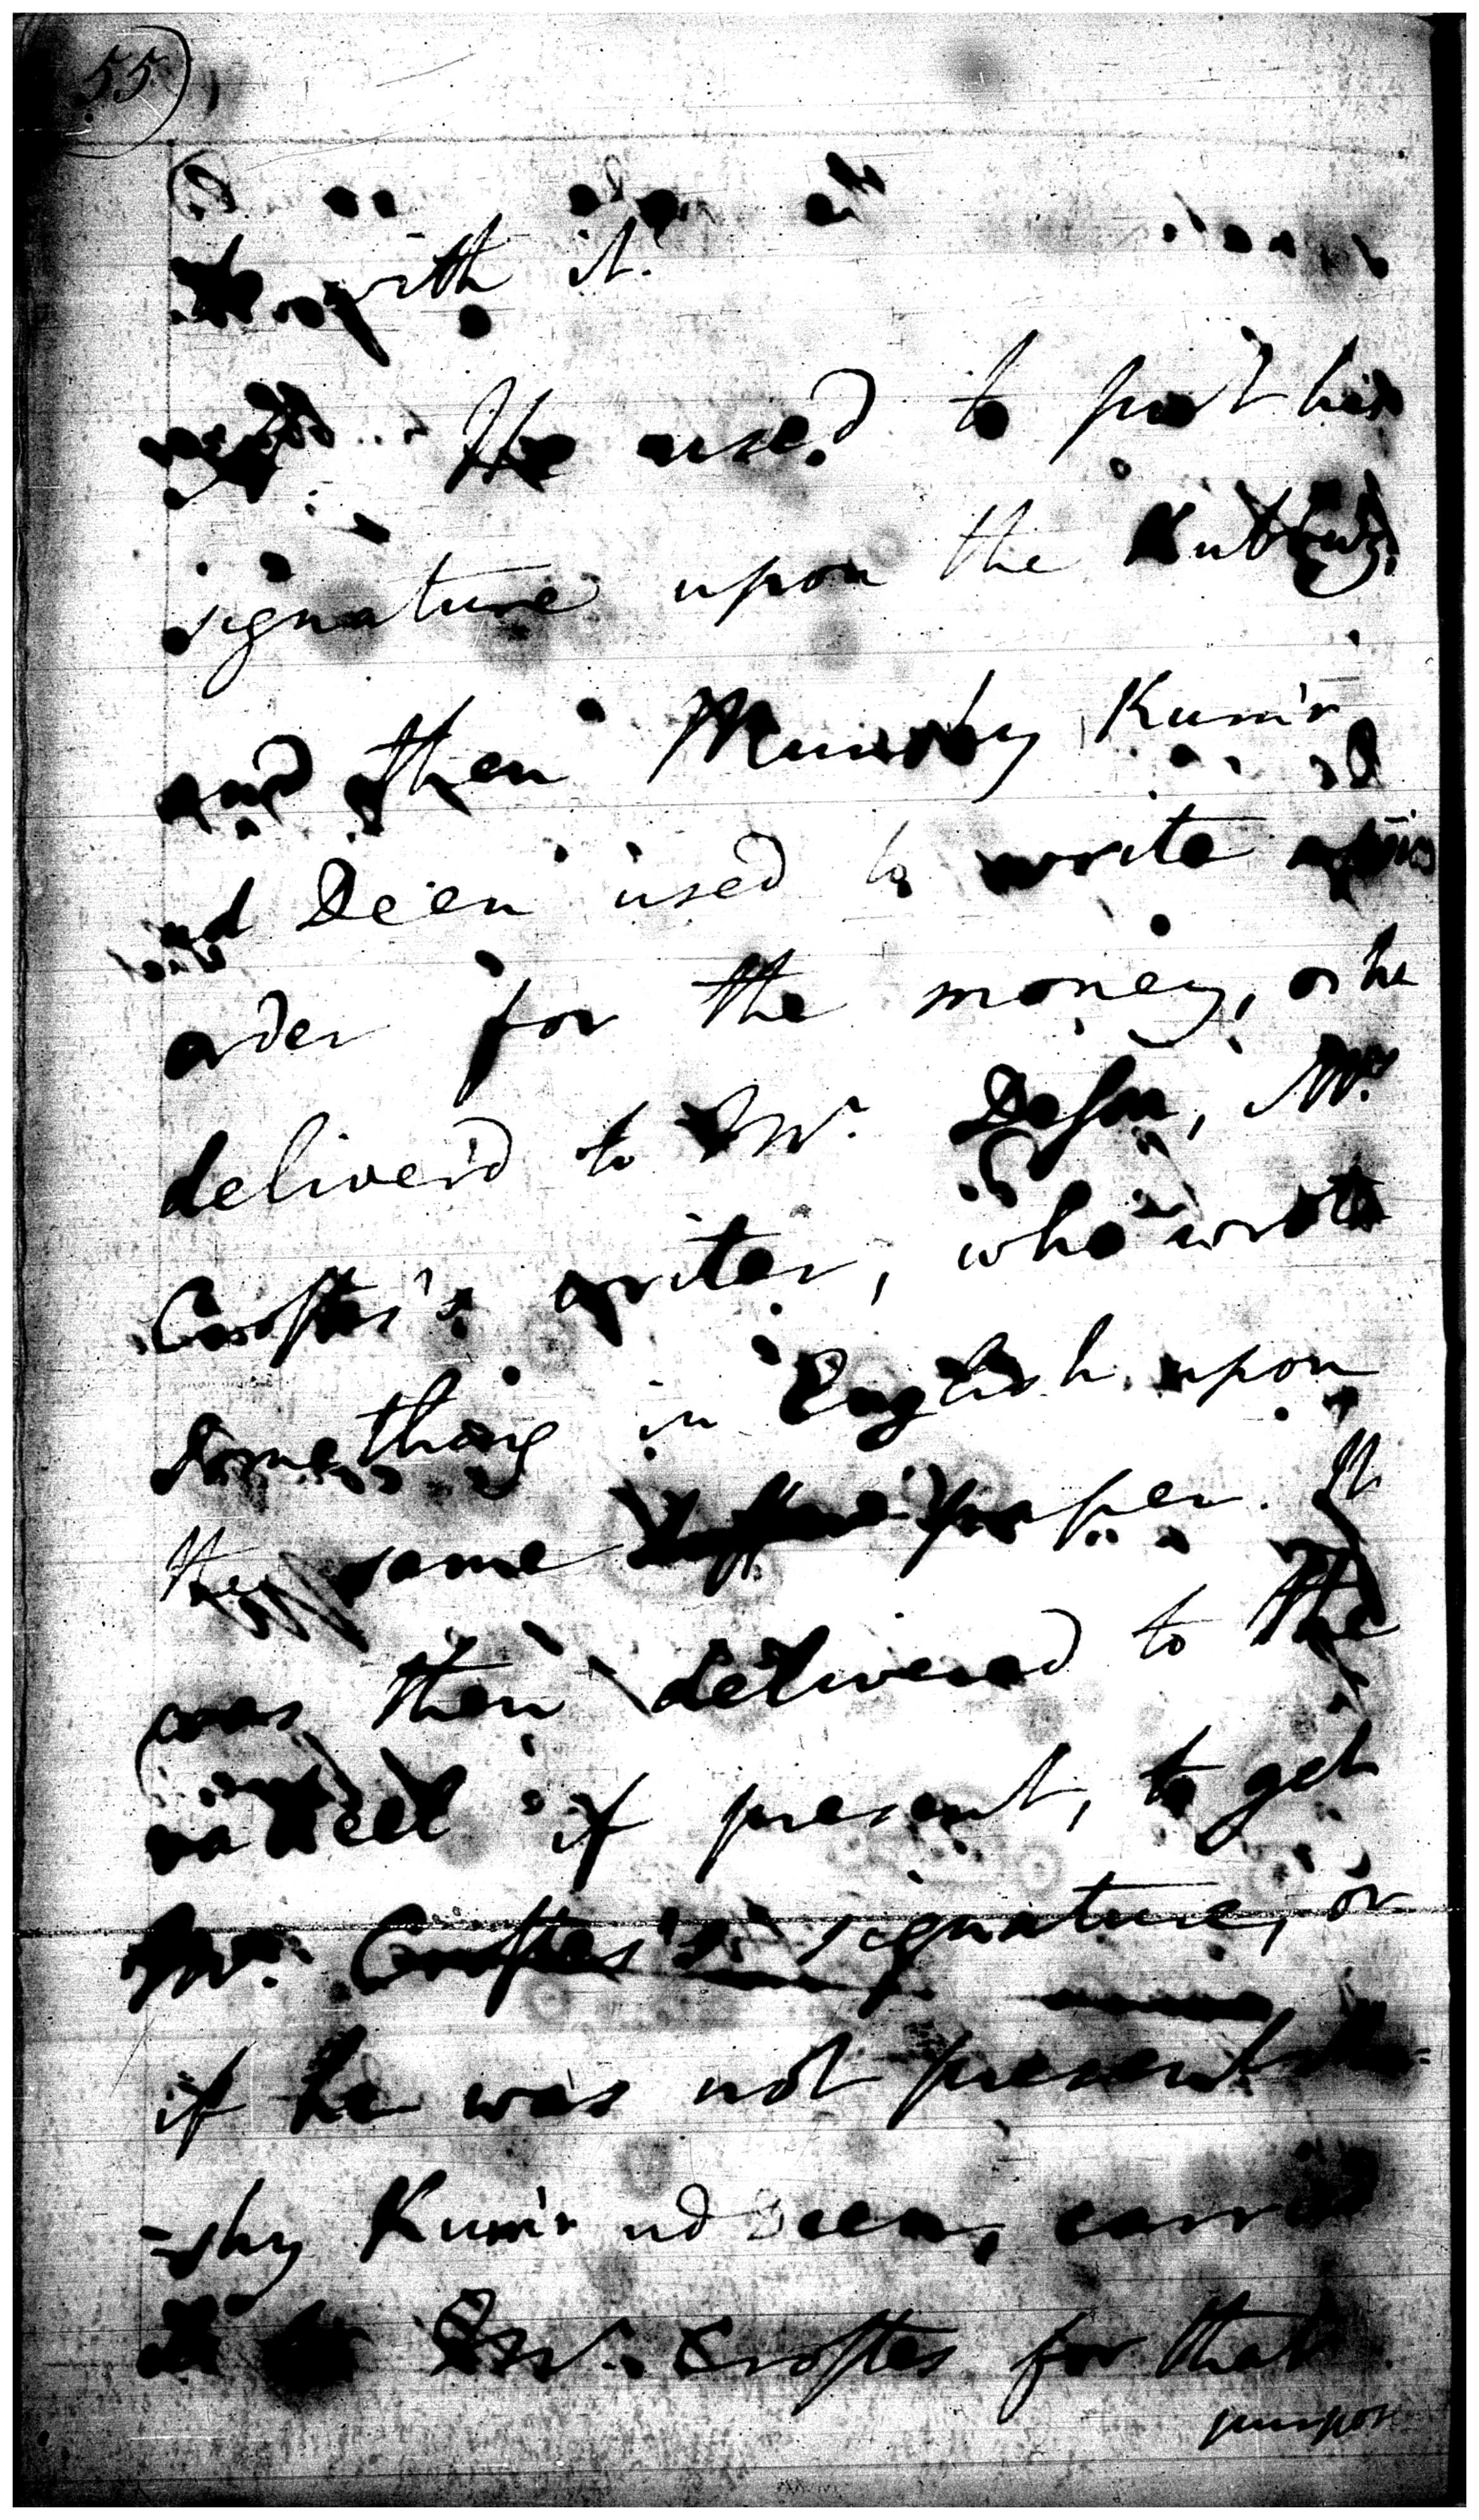 55
with it.
He used to put his
signature upon the
and then Munshy Kum'r
ud Deen used to write
order for the money, or he
deliver'd to Mr. Mr.
Croftes's writer, who wrote
something in English upon
the same paper. It
was then delivered to the
vakeel if present, to get
Mr. Croftes's signature, or
if he was not present
-shy Kum'r ud Deen, carried
Mr. Croftes for that
purpose